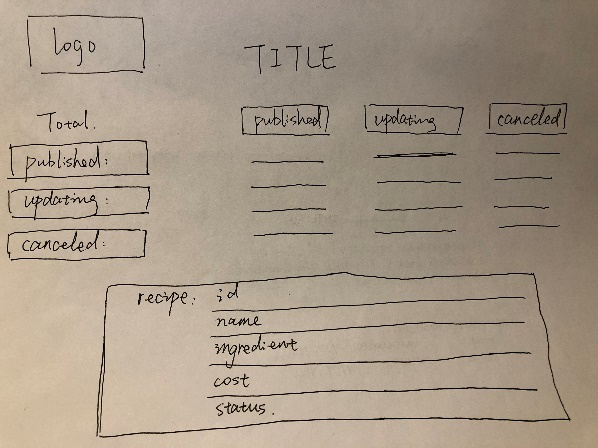 logo
TITLE
Total.
published:
updating:
canceled:
published
updating
canceled
recipe: id
name
ingredient
cost
status.